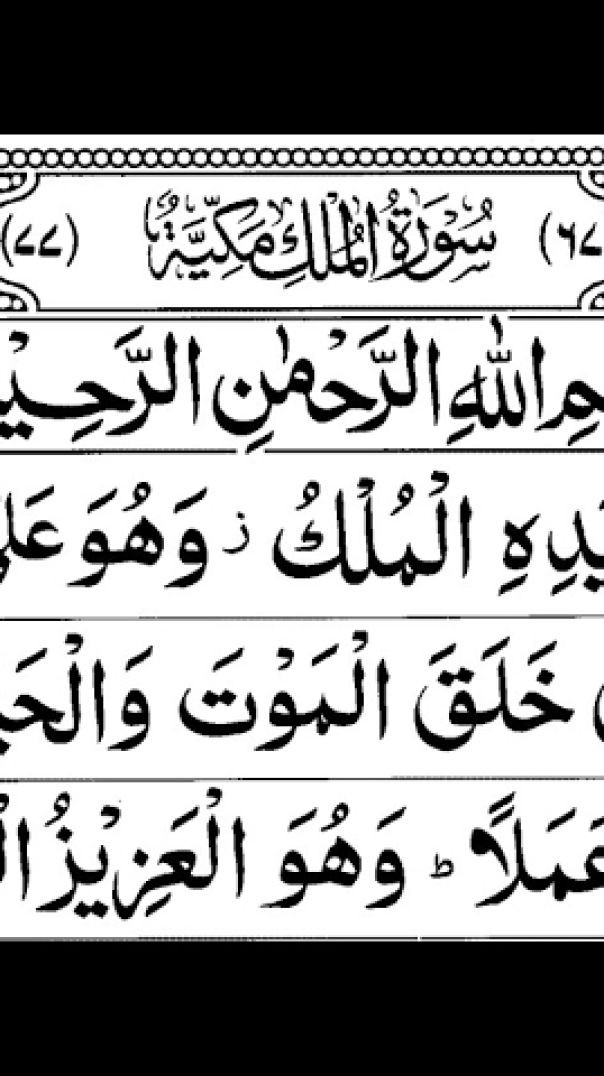 (٦٧ سُوْرَةُ الْمُلْكِ مَكِّيَّةٌ (٧٧)
مِ اللّٰهِ الرَّحْمٰنِ الرَّحِيْ
يَدِهِ الْمُلْكُ ز وَهُوَ عَلٰى
خَلَقَ الْمَوْتَ وَالْحَيٰ
عَمَلًا ط وَهُوَ الْعَزِيْزُ الْ